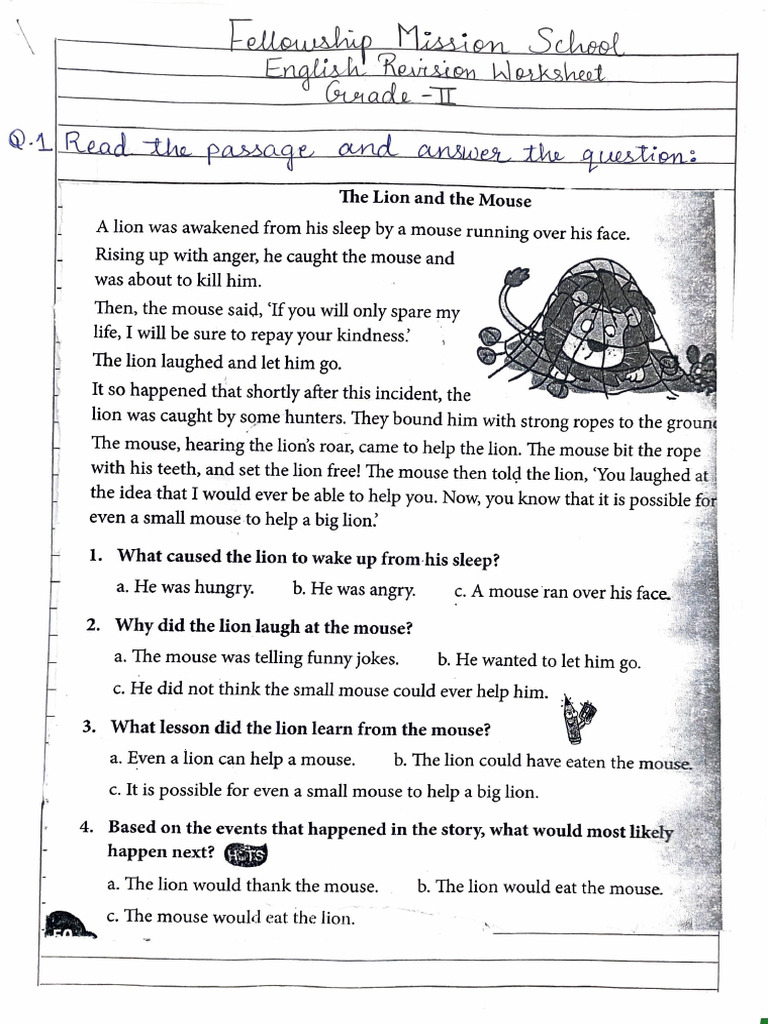 Fellowship Mission School
English Revision Worksheet
Grade - II
Q.1 Read the passage and answer the question:
The Lion and the Mouse
A lion was awakened from his sleep by a mouse running over his face.
Rising up with anger, he caught the mouse and
was about to kill him.
Then, the mouse said, ‘If you will only spare my
life, I will be sure to repay your kindness.’
The lion laughed and let him go.
It so happened that shortly after this incident, the
lion was caught by some hunters. They bound him with strong ropes to the groun
The mouse, hearing the lion’s roar, came to help the lion. The mouse bit the rope
with his teeth, and set the lion free! The mouse then told the lion, ‘You laughed at
the idea that I would ever be able to help you. Now, you know that it is possible for
even a small mouse to help a big lion.’
1. What caused the lion to wake up from his sleep?
a. He was hungry. b. He was angry. c. A mouse ran over his face.
2. Why did the lion laugh at the mouse?
a. The mouse was telling funny jokes. b. He wanted to let him go.
c. He did not think the small mouse could ever help him.
3. What lesson did the lion learn from the mouse?
a. Even a lion can help a mouse. b. The lion could have eaten the mouse.
c. It is possible for even a small mouse to help a big lion.
4. Based on the events that happened in the story, what would most likely
happen next? HOTS
a. The lion would thank the mouse. b. The lion would eat the mouse.
c. The mouse would eat the lion.
50